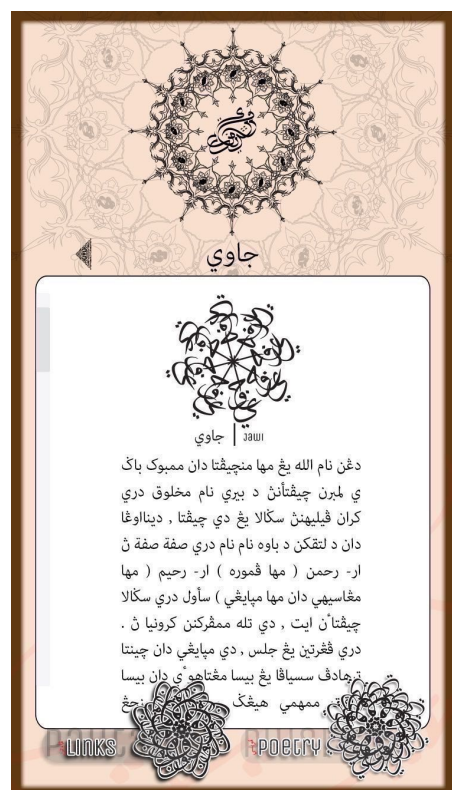 جاوي
جاوي | Jawi
دڠن نام الله يڠ مها منچيڤتا دان ممبوک باݢ
ي لمبرن چيڤتأنڽ د بيري نام مخلوق دري
کران ڤيليهنڽ سݢالا يڠ دي چيڤتا , ديناٴوڠا
دان د لتقکن د باوه نام نام دري صفة صفة ڽ
ار- رحمن ( مها ڤموره ) ار- رحيم ( مها
مڠاسيهي دان مها مپايڠي ) سأول دري سݢالا
چيڤتاٴن ايت , دي تله ممڤرکنن کرونيا ڽ .
دري ڤڠرتين يڠ جلس , دي مپايڠي دان چينتا
ترهادڤ سسياڤا يڠ بيسا مڠتاهوٴي دان بيسا
ممهمي هيڠݢ
LINKS
POETRY